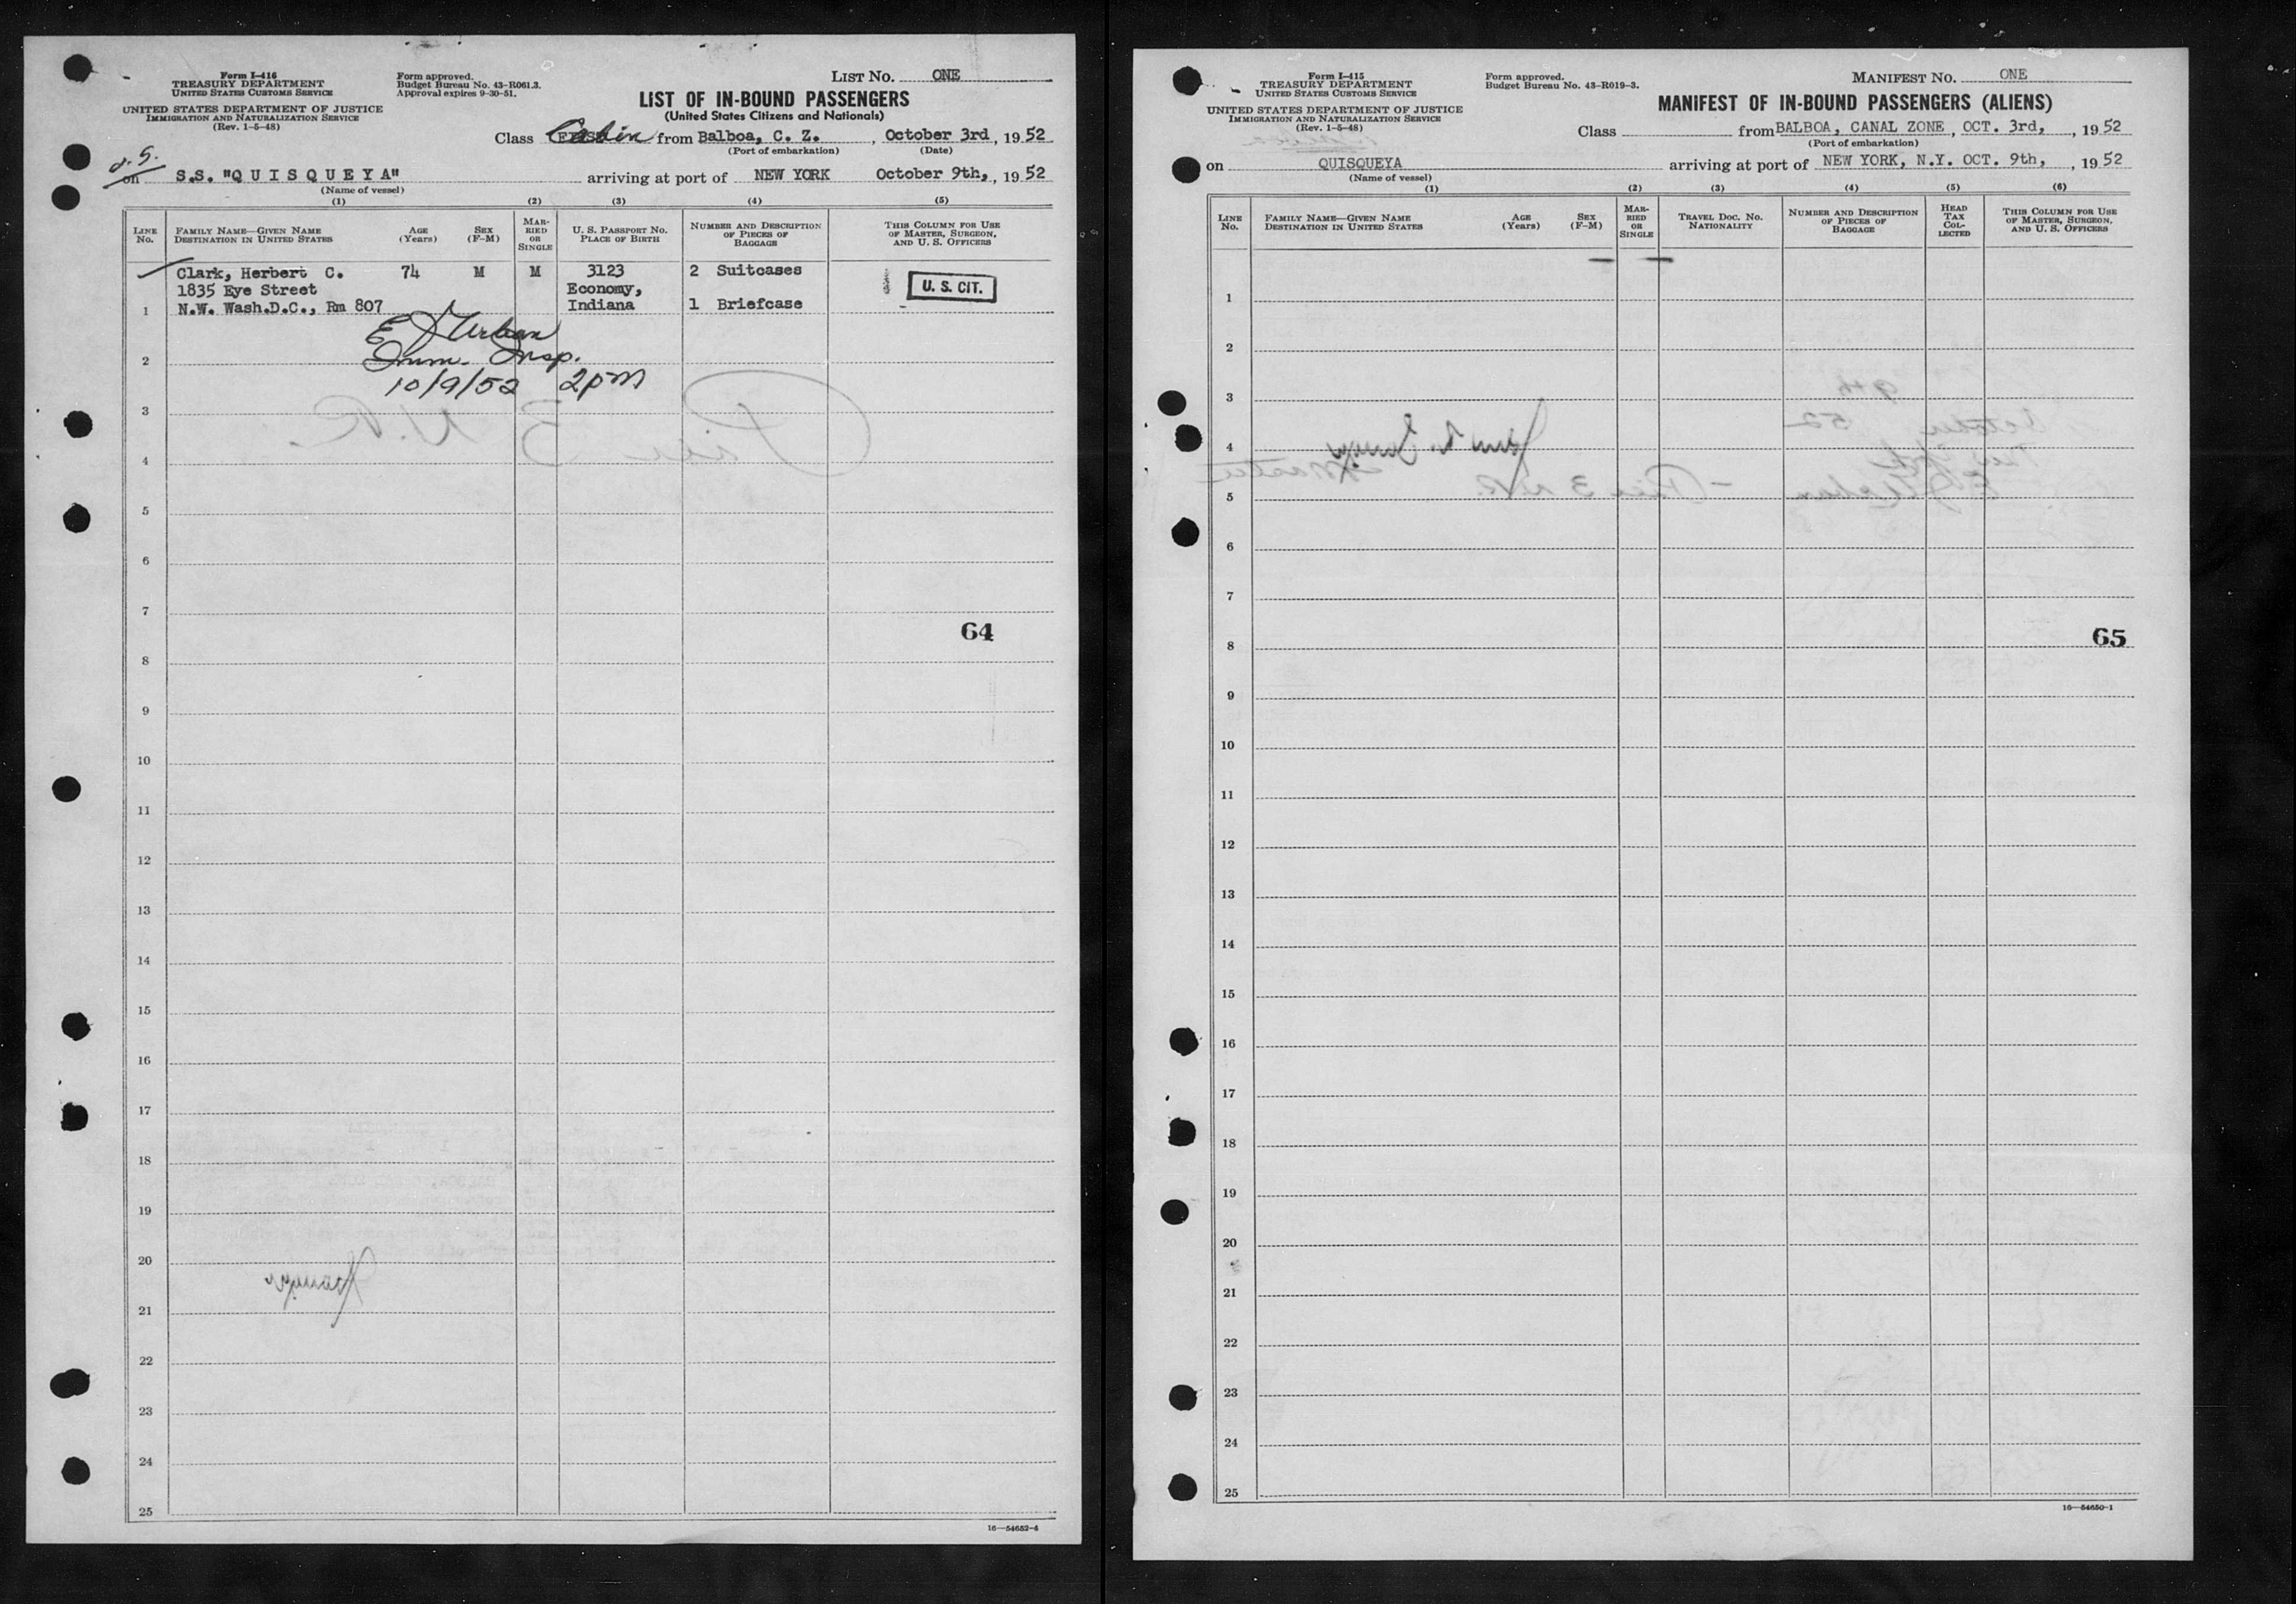 Form I-416
TREASURY DEPARTMENT
UNITED STATES CUSTOMS SERVICE
UNITED STATES DEPARTMENT OF JUSTICE
IMMIGRATION AND NATURALIZATION SERVICE
(Rev. 1-5-48)
Form approved.
Budget Bureau No. 43-R061.3.
Approval expires 9-30-51.
LIST NO. ONE
LIST OF IN-BOUND PASSENGERS
(United States Citizens and Nationals)
Class Cabin from Balboa, C. Z., October 3rd, 1952
(Port of embarkation) (Date)
on S.S. "Q U I S Q U E Y A" arriving at port of NEW YORK October 9th, 1952
(Name of vessel)
(1) (2) (3) (4) (5)
LINE No.
FAMILY NAME—GIVEN NAME
DESTINATION IN UNITED STATES
AGE (Years)
SEX (F-M)
MARRIED OR SINGLE
U. S. PASSPORT NO.
PLACE OF BIRTH
NUMBER AND DESCRIPTION OF PIECES OF BAGGAGE
THIS COLUMN FOR USE OF MASTER, SURGEON, AND U. S. OFFICERS
Clark, Herbert C. 74 M M 3123 2 Suitcases U. S. CIT.
1835 Eye Street Economy,
1 N.W. Wash.D.C., Rm 807 Indiana 1 Briefcase
E J Urban
2 Imm. Insp.
10/9/52 2pm
3
4
5
6
7
64
8
9
10
11
12
13
14
15
16
17
18
19
20
21
22
23
24
25
16—54652-4
Form I-415
TREASURY DEPARTMENT
UNITED STATES CUSTOMS SERVICE
UNITED STATES DEPARTMENT OF JUSTICE
IMMIGRATION AND NATURALIZATION SERVICE
(Rev. 1-5-48)
Form approved.
Budget Bureau No. 43-R019-3.
MANIFEST NO. ONE
MANIFEST OF IN-BOUND PASSENGERS (ALIENS)
Class from BALBOA, CANAL ZONE, OCT. 3rd, 1952
(Port of embarkation)
on QUISQUEYA arriving at port of NEW YORK, N.Y. OCT. 9th, 1952
(Name of vessel)
(1) (2) (3) (4) (5) (6)
LINE No.
FAMILY NAME—GIVEN NAME
DESTINATION IN UNITED STATES
AGE (Years)
SEX (F-M)
MARRIED OR SINGLE
TRAVEL DOC. NO.
NATIONALITY
NUMBER AND DESCRIPTION OF PIECES OF BAGGAGE
HEAD TAX COLLECTED
THIS COLUMN FOR USE OF MASTER, SURGEON, AND U. S. OFFICERS
1
2
3
4
5
6
7
65
8
9
10
11
12
13
14
15
16
17
18
19
20
21
22
23
24
25
16—54650-1